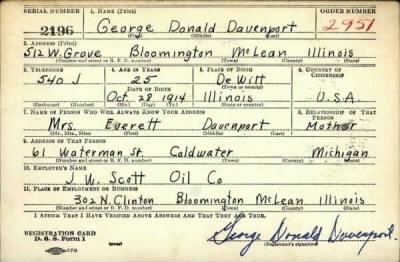 SERIAL NUMBER 1. NAME (Print) ORDER NUMBER
2196 George Donald Davenport 2951
(First) (Middle) (Last)
2. ADDRESS (Print)
512 W. Grove Bloomington McLean Illinois
(Number and street or R. F. D. number) (Town) (County) (State)
3. TELEPHONE 4. AGE IN YEARS 5. PLACE OF BIRTH 6. COUNTRY OF CITIZENSHIP
540 J 25 De Witt
DATE OF BIRTH (Town or county)
Oct 28 1914 Illinois U.S.A
(Exchange) (Number) (Mo.) (Day) (Yr.) (State or country)
7. NAME OF PERSON WHO WILL ALWAYS KNOW YOUR ADDRESS 8. RELATIONSHIP OF THAT PERSON
Mrs Everett Davenport Mother
(Mr., Mrs., Miss) (First) (Middle) (Last)
9. ADDRESS OF THAT PERSON
61 Waterman St. Coldwater Michigan
(Number and street or R. F. D. number) (Town) (County) (State)
10. EMPLOYER'S NAME
J. W. Scott Oil Co
11. PLACE OF EMPLOYMENT OR BUSINESS
302 N. Clinton Bloomington McLean Illinois
(Number and street or R. F. D. number) (Town) (County) (State)
I AFFIRM THAT I HAVE VERIFIED ABOVE ANSWERS AND THAT THEY ARE TRUE.
REGISTRATION CARD
D. S. S. Form 1 George Donald Davenport.
(over) (Registrant's signature)